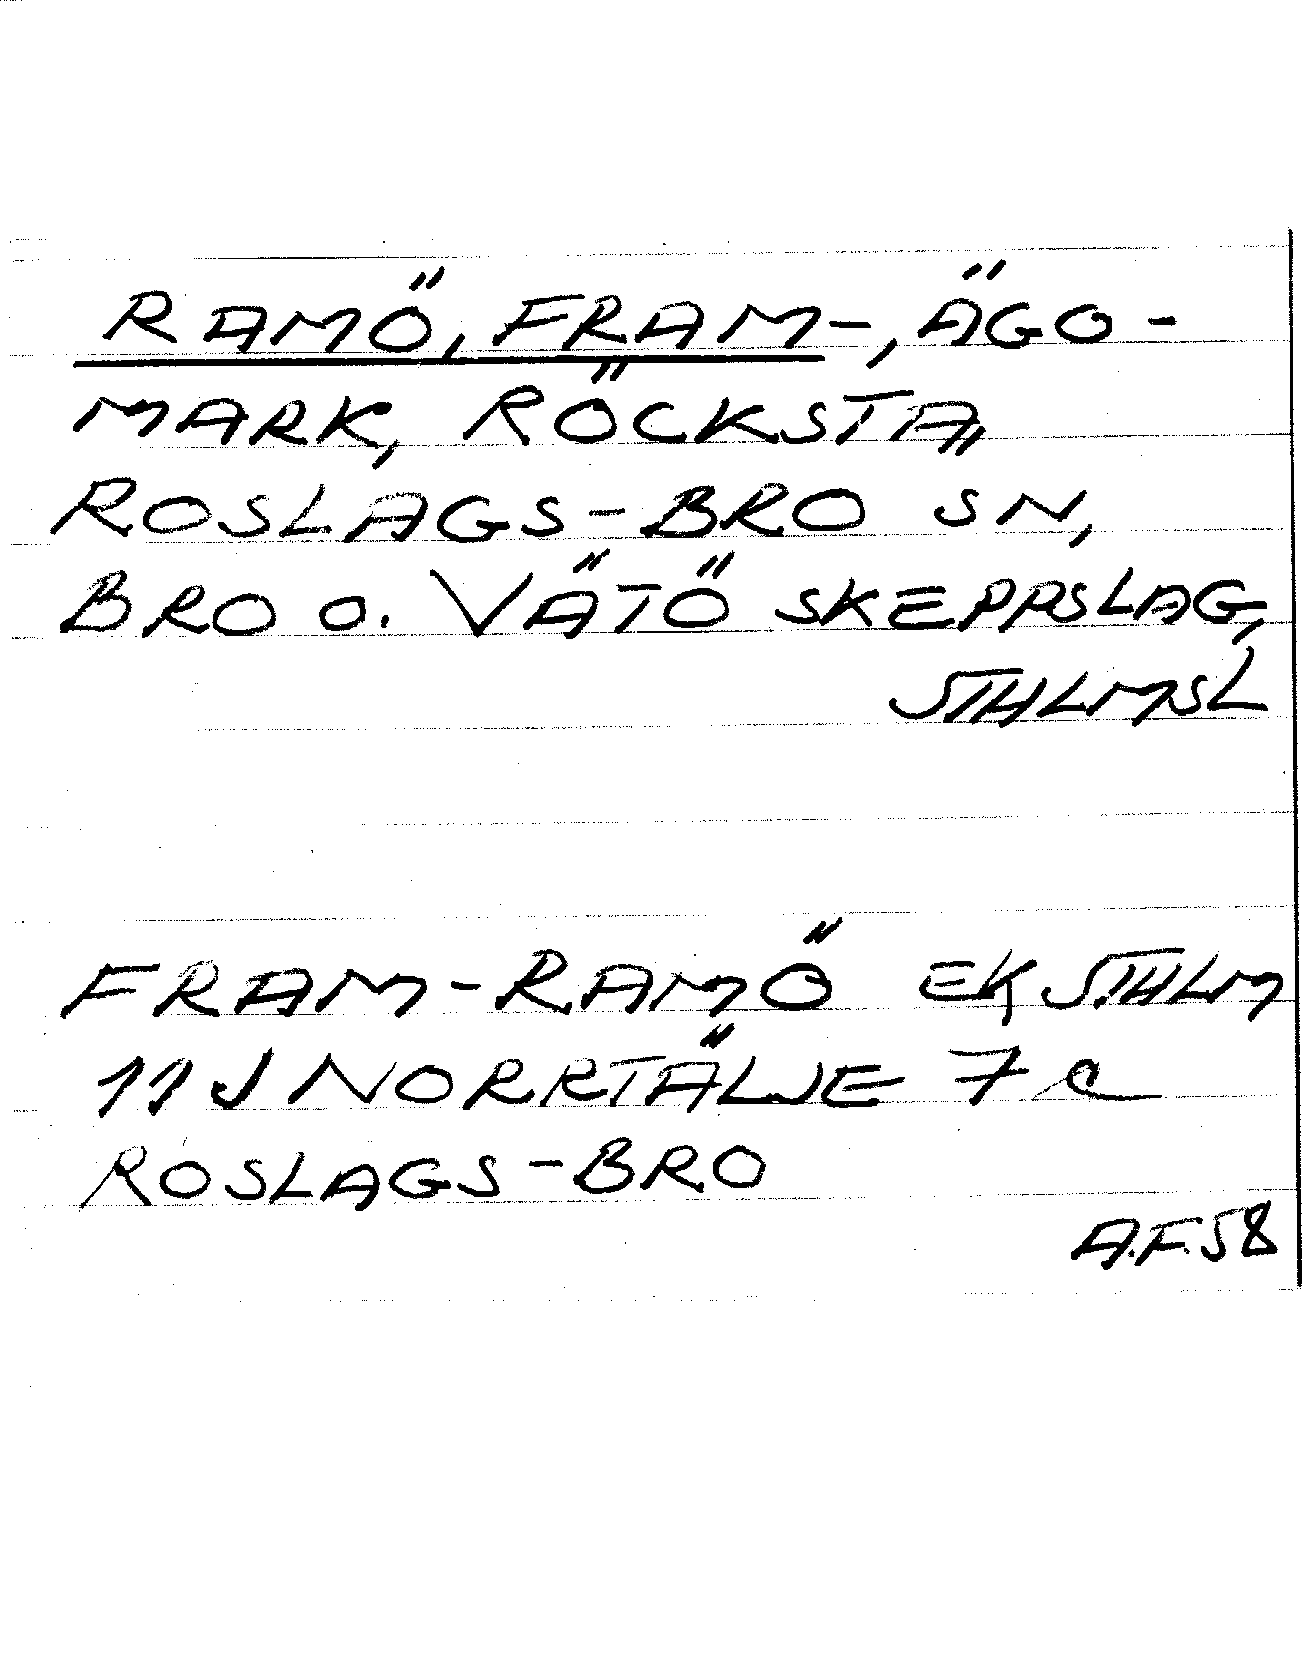 RAMÖ, FRAM-, ÄGO-
MARK, RÖCKSTA,
ROSLAGS-BRO SN,
BRO O. VÄTÖ SKEPPSLAG,
STHLMSL
FRAM-RAMÖ EK STHLM
11J NORRTÄLJE 7 c
ROSLAGS-BRO
A.F. 58